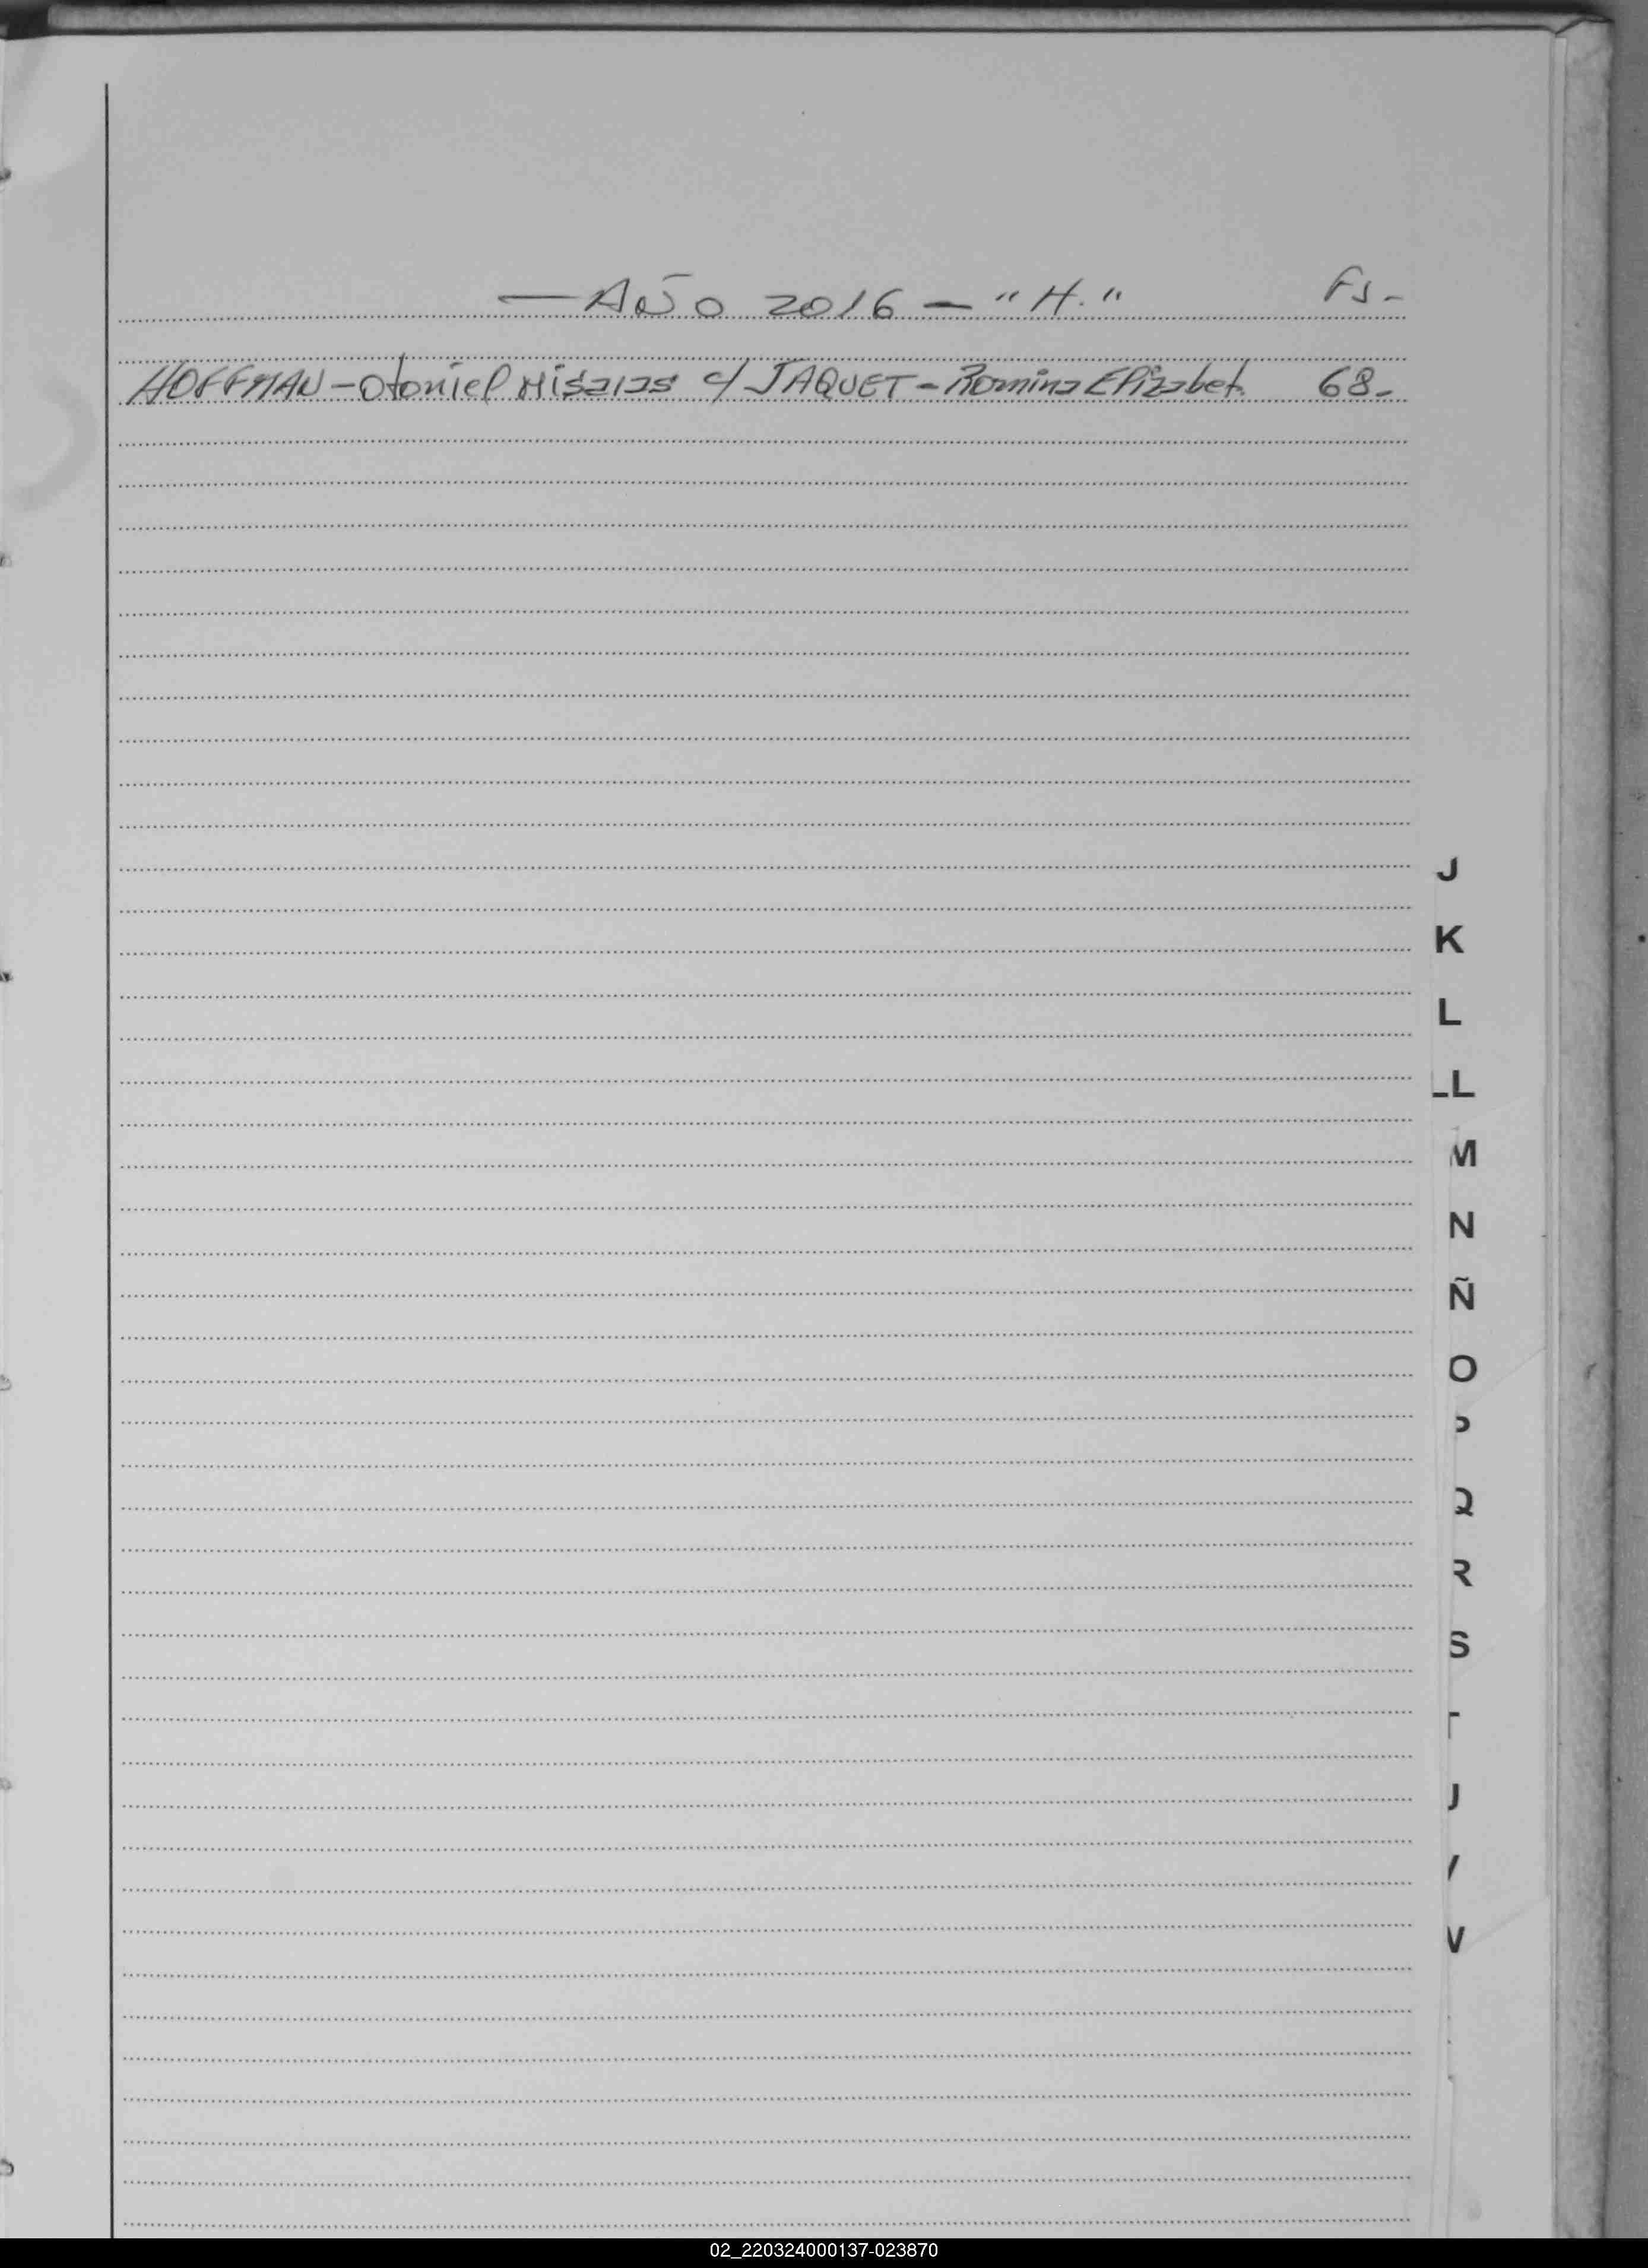 — AÑO 2016 — "H." Fs-
HOFFMAN - Otoniel Misaias c/ JAQUET - Romina Elizabet. 68-
J
K
L
LL
M
N
Ñ
O
P
Q
R
S
T
U
V
W
02_220324000137-023870